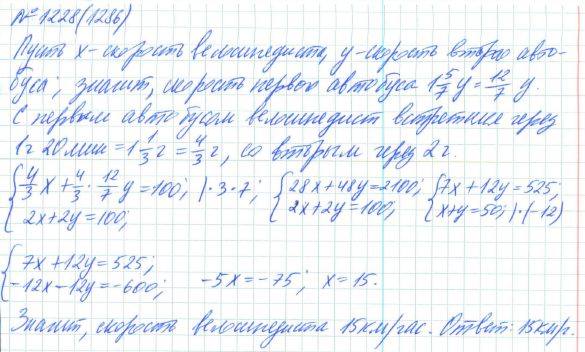 № 1228(1286)
Пусть x - скорость велосипедиста, y - скорость второго авто-
буса; значит, скорость первого автобуса 1 5/7 y = 12/7 y.
С первым автобусом велосипедист встретился через
1 г 20 мин = 1 1/3 г = 4/3 г, со вторым через 2 г.
{ 4/3 x + 4/3 · 12/7 y = 100; | · 3 · 7; { 28x + 48y = 2100; { 7x + 12y = 525;
2x + 2y = 100; 2x + 2y = 100; x + y = 50; | · (-12)
{ 7x + 12y = 525;
-12x - 12y = -600; -5x = -75; x = 15.
Значит, скорость велосипедиста 15 км/час. Ответ: 15 км/г.